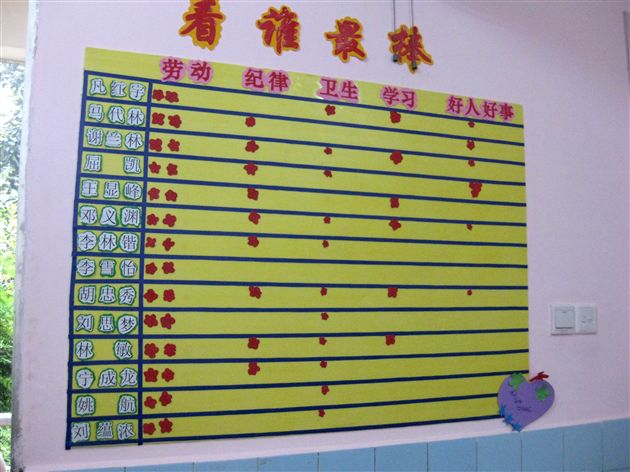 看谁最棒
劳动 纪律 卫生 学习 好人好事
凡红学
马代林
谢兰林
屈凯
王显峰
邓义渊
李林锴
李雪怡
胡忠秀
刘思梦
林敏
宁成龙
姚航
刘蕴浓